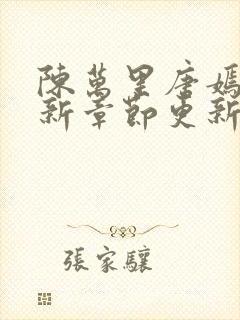 陳萬里唐嫣
新章節更新
張家驤